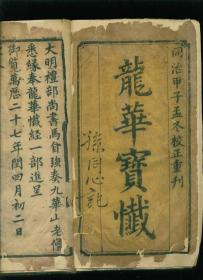 同治甲子孟冬校正重刊
龍華寶懺
孫同心記
大明禮部尚書馬自強奏九華山老僧
悉緣奉龍華懺經一部進呈
御覧萬曆二十七年閏四月初二日